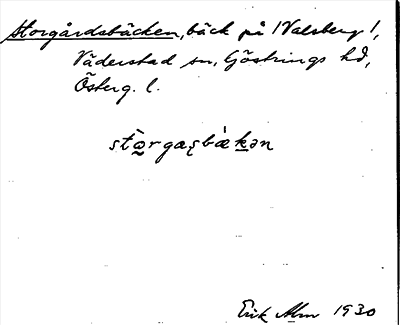 Storgårdsbäcken, bäck på /Valsberg/,
Väderstad sn, Göstrings hd,
Österg. l.
stò̰rgaʂbæ̀k̲ən
Erik Alm 1930